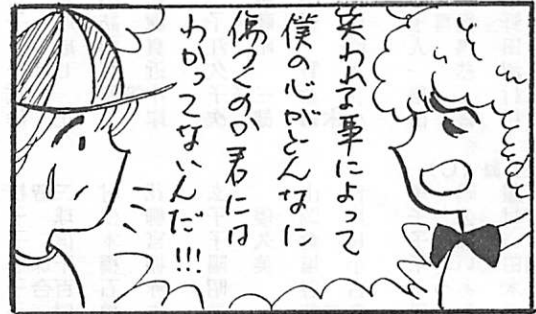 笑われる事によって
僕の心がどんなに
傷つくのか君には
わかってないんだ!!!